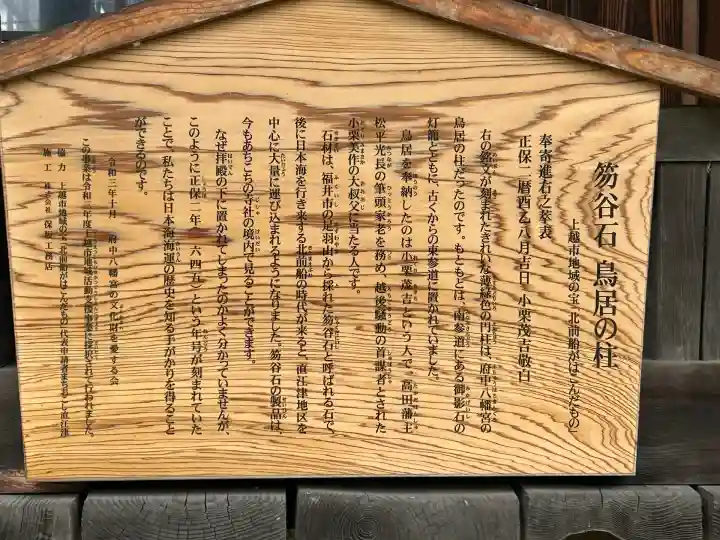 笏谷石 鳥居の柱
上越市「地域の宝」北前船がはこんだもの
奉寄進右之華表
正保二暦酉乙八月吉日 小栗茂吉敬白
右の銘文が刻まれたきれいな薄緑色の円柱は、府中八幡宮の
鳥居の柱だったのです。もともとは、南参道にある御影石の
灯籠とともに、古くからの東参道に置かれていました。
鳥居を奉納したのは小栗茂吉という人で、高田藩主
松平光長の筆頭家老を務め、越後騒動の首謀者とされた
小栗美作の大叔父に当たる人です。
石材は、福井市の足羽山から採れた笏谷石と呼ばれる石で、
後に日本海を行き来する北前船の時代が来ると、直江津地区を
中心に大量に運び込まれるようになりました。笏谷石の製品は、
今もあちこちの寺社の境内で見ることができます。
なぜ拝殿の下に置かれてしまったのかよく分かっていませんが、
このように正保二年(一六四五)という年号が刻まれていた
ことで、私たちは日本海海運の歴史を知る手がかりを得ること
ができるのです。
令和二年十月 府中八幡宮の文化財を愛する会
この事業は令和二年度上越市地域活動支援事業に採択されて行われました。
協力 上越市地域の宝「北前船がはこんだもの」代表申請者まちおこし直江津
施工 株式会社 保坂工務店